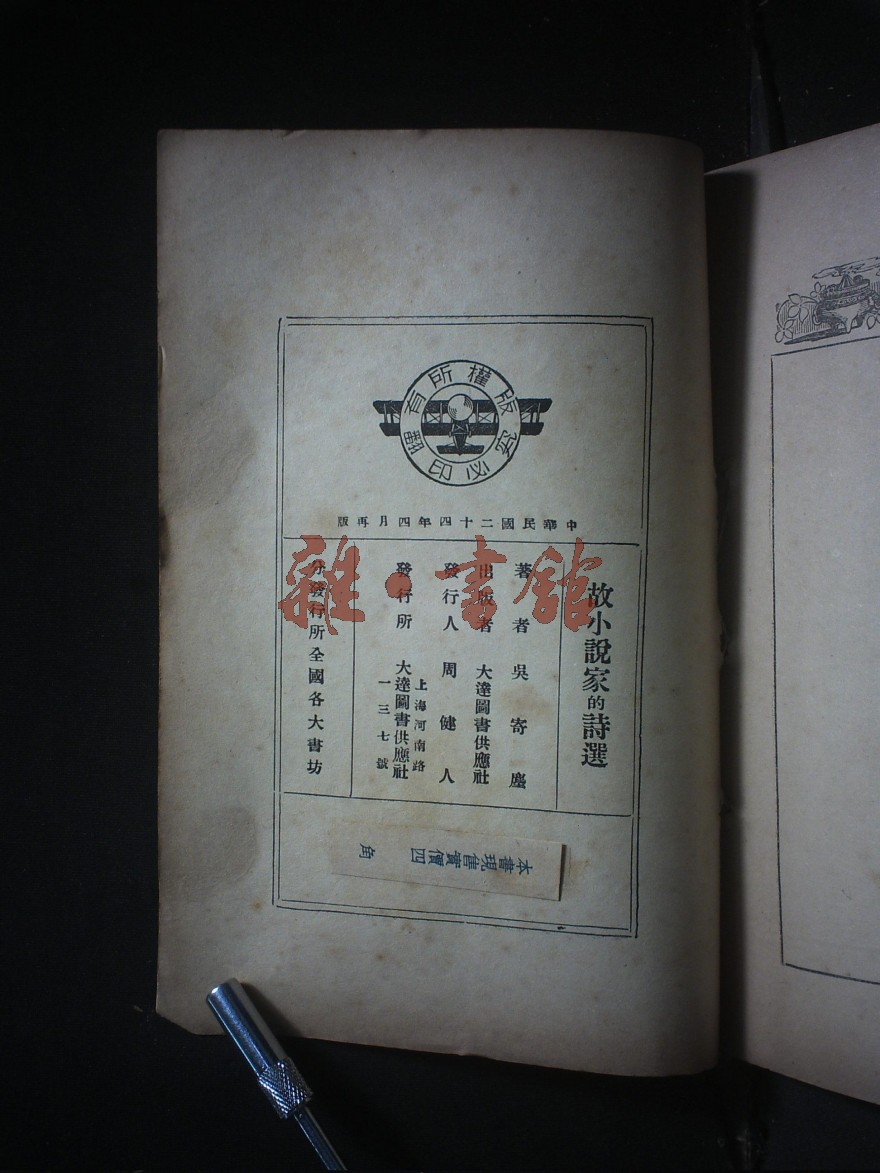 版權所有
翻印必究
中華民國二十四年四月再版
故小說家的詩選
著者 吳寄塵
出版者 大達圖書供應社
發行人 周健人
發行所 大達圖書供應社
上海河南路
一三七號
分發行所全國各大書坊
本書現售實價四角
雜·書館